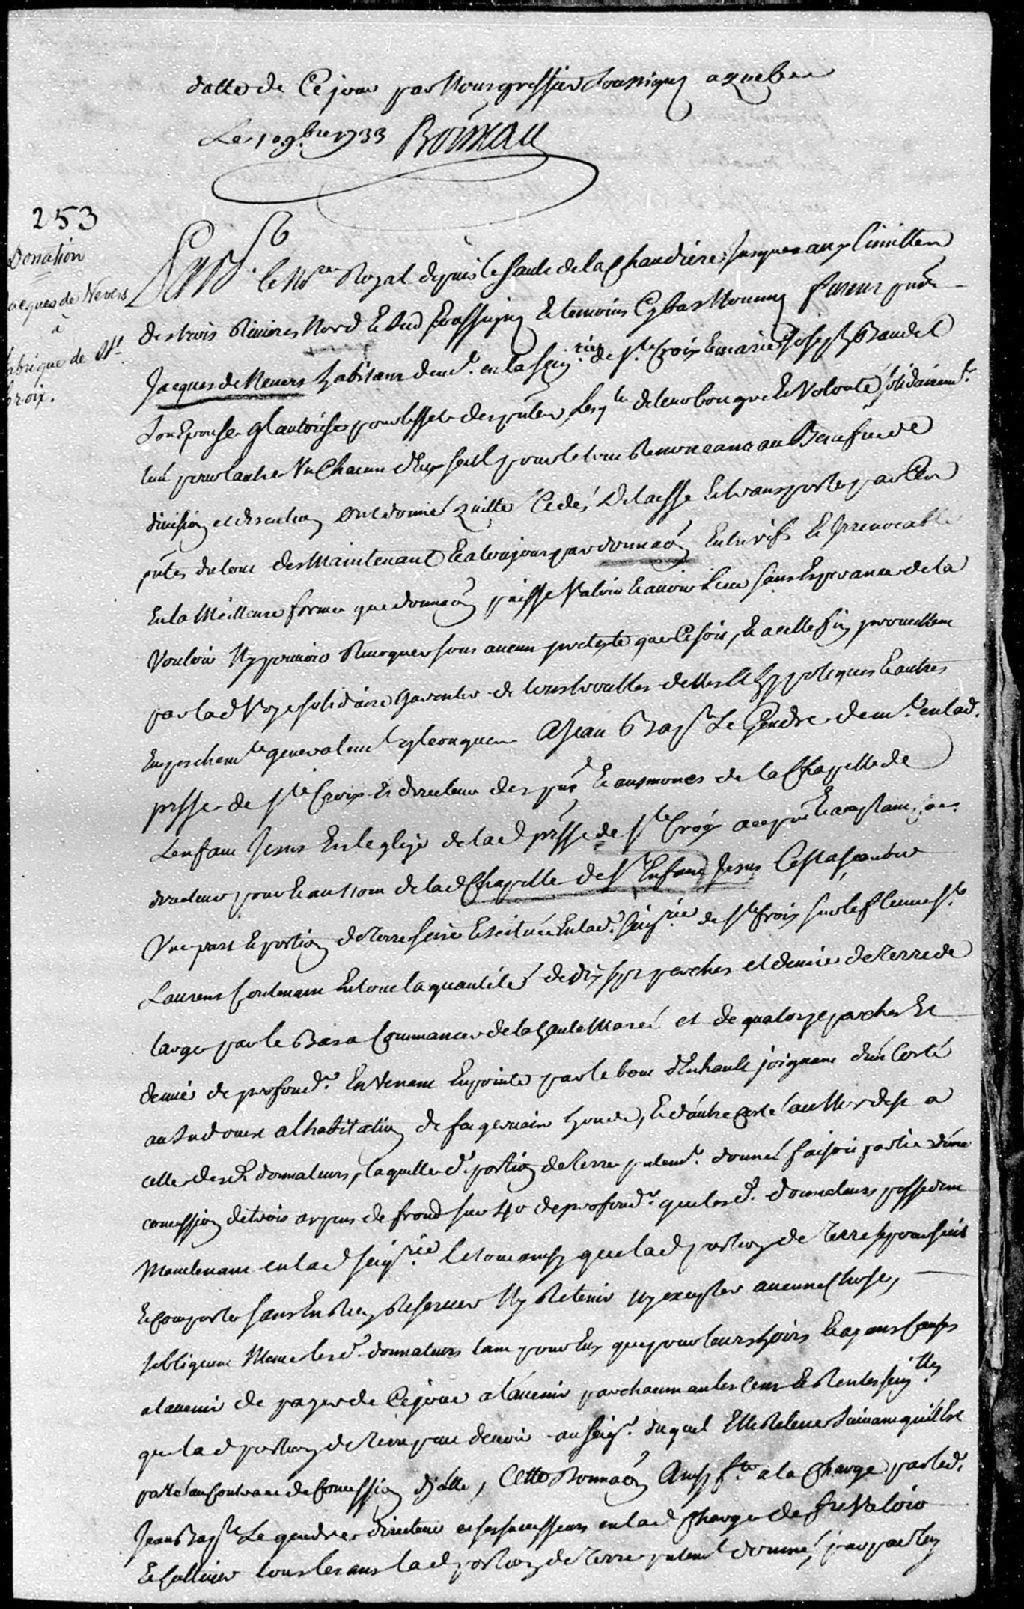 datte de Ce jour par Nous greffier Soussigné a quebec
Le 10 9bre 1733 Boisseau
253
Donation
Jacques de Nevers
à
fabrique de Ste
Croix.
Pardt le Nre Royal depuis le Sault de la Chaudiere jusques aux limittes
des trois Rivieres Nord et Sud soussigné et temoins Cy bas Nommez furent pnts
Jacques de Nevers habitant demt. en la seigrie de Ste Croix et marie Joseph Baudet
Son Epouse qu'il autorise pour l'effet des pntes Lesqls de leur bon gré et Volonté solidairemt.
l'un pour l'autre Un Chacun d'Eux seul pour le tout Renonceant au Benefice de
division et discution ont donné quitté Cedé Delaissé et transporté par Ces
pntes du tout des Maintenant et a toujours par donnaon Entre vifs et Irrevocable
En la Meilleure forme que donnaon puisse Valoir et avoir lieu sans Esperance de la
Vouloir Ny pouvoir Revoquer sous aucun pretexte que Ce soit, et a celle fin promettent
par lad Voye solidaire garentir de tous troubles dettes hypoteques et autres
Empeschemts generalemt quelconques a Jean Bapt Le Gendre demt. en lad.
psse de Ste Croix et directeur des et ausmones de la Chapelle de
L'enfant Jesus En l'eglize de lad psse de Ste Croix acceptant
directeur pour et au Nom de lad Chapelle de St Enfant Jesus C'est a
Une part et portion de terre size et scituée En lad. seigrie de Ste Croix sur le fleuve St
Laurens Contenant En tout la quantité de dix sept perches et demie de terre de
large par le Bas a Commancer de la haute Marée et de quatorze perches et
demie de profondr. En Venant En pointe par le bout d'En hault joignant d'un Costé
au Sudouest a l'habitation de feu germain houde, et d'autre Costé au Nordest a
celle desd. donnateurs, laquelle de portion de terre pntemt. donnée faisoit partie d'une
concession de trois arpens de front sur 40 de profondr. que lesd. donnateurs possedent
Maintenant en lad seigrie le tout ainsy que lad portion de terre se poursuit
et Comporte sans En Rien Reserver Ny Retenir ny excepter aucune Chose,
s'obligeant Meme lesd. donnateurs tant pour Eux que pour leurs hoirs et ayans Causes
a l'avenir de payer de Ce jour a l'avenir par chacun an les cens et Rentes seiglles
que lad portion de terre peut devoir au seigr. duquel Elle Releve suivant qu'il Est
porté au Contract de Concession d'jcelle, Cette donnaon ainsy fte a la Charge par led.
Jean Bapt Le gendre directeur et ses successeurs en lad Charge de faire Valoir
et Cultiver tous les ans lad portion de terre pntemt donnée,